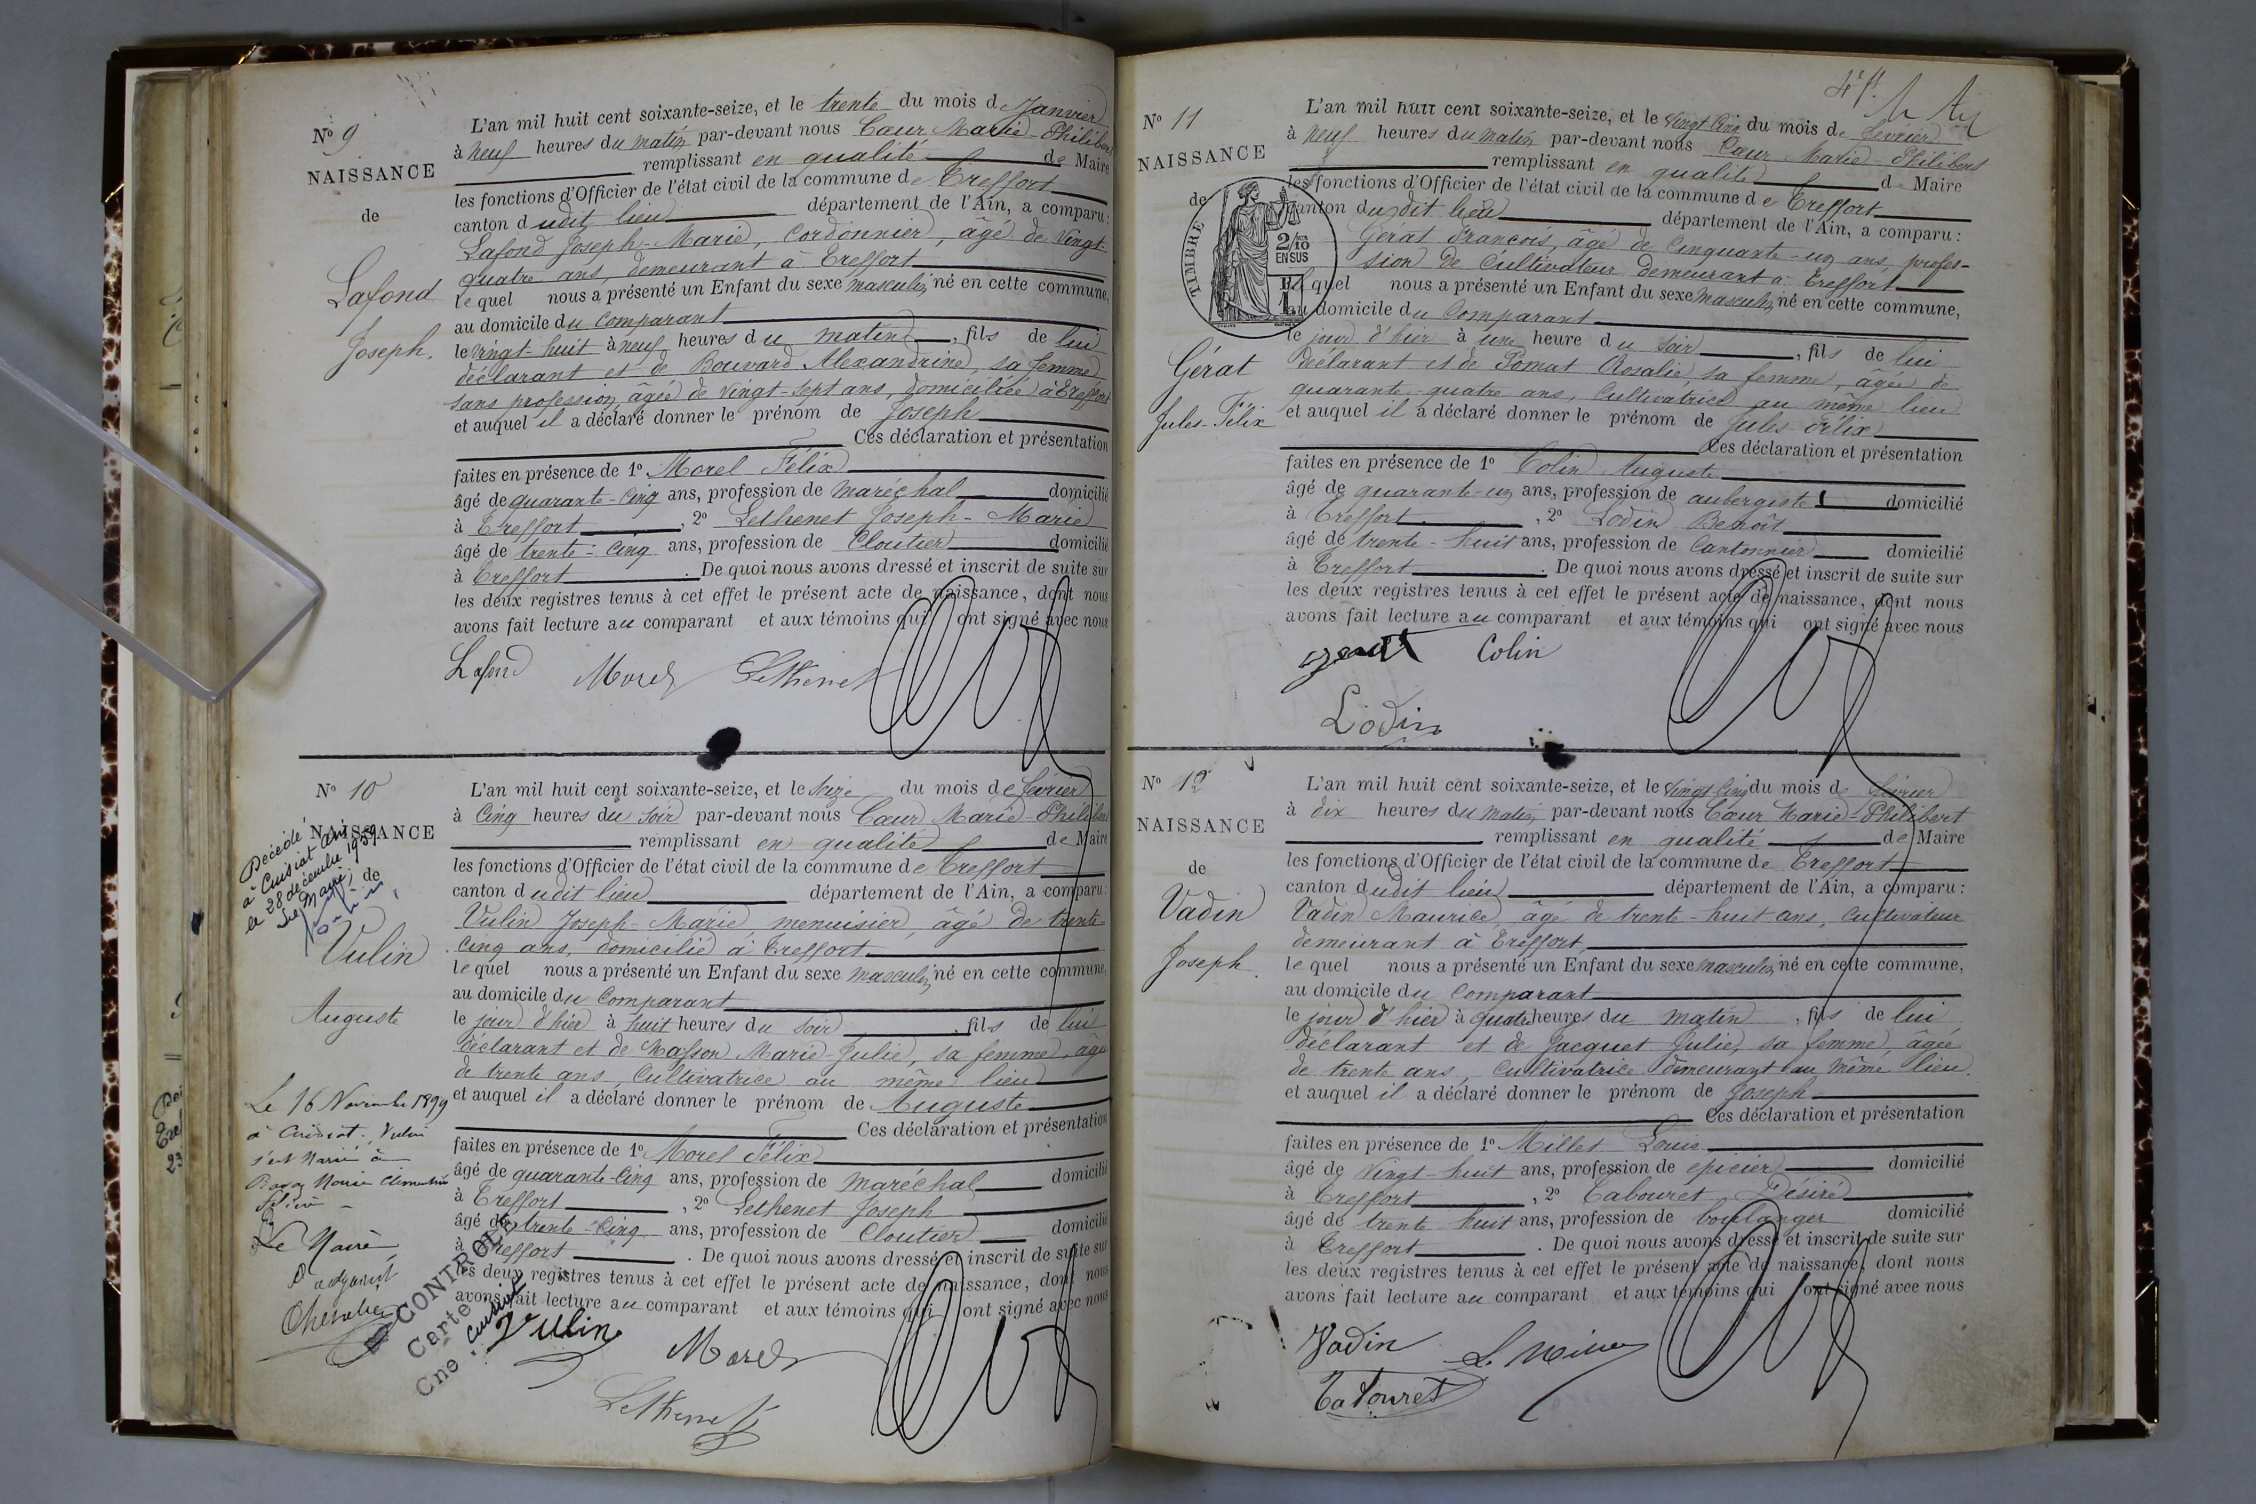 No 9
NAISSANCE
de
Lafond
Joseph.
L'an mil huit cent soixante-seize, et le trente du mois de Janvier
à neuf heures du matin par-devant nous Cœur Marie-Philibert
remplissant en qualité de Maire
les fonctions d'Officier de l'état civil de la commune de Treffort
canton dudit lieu département de l'Ain, a comparu:
Lafond Joseph-Marie, Cordonnier, âgé de Vingt-
quatre ans, demeurant à Treffort
le quel nous a présenté un Enfant du sexe masculin né en cette commune,
au domicile du Comparant
le vingt-huit à neuf heures du matin, fils de lui
déclarant et de Bouvard Alexandrine, sa femme
sans profession, âgée de vingt-sept ans, domiciliée à Treffort
et auquel il a déclaré donner le prénom de Joseph
Ces déclaration et présentation
faites en présence de 1o Morel Félix
âgé de quarante-cinq ans, profession de maréchal domicilié
à Treffort, 2o Lethenet Joseph-Marie
âgé de trente-cinq ans, profession de Cloutier domicilié
à Treffort. De quoi nous avons dressé et inscrit de suite sur
les deux registres tenus à cet effet le présent acte de naissance, dont nous
avons fait lecture au comparant et aux témoins qui ont signé avec nous
Lafond Morel Lethenet
No 10
NAISSANCE
de
Décédé
à Cuisiat Ain
le 28 décembre 1959
Le Maire,
Vulin
Auguste
Le 16 Novembre 1899
à Cuisiat, Vulin
s'est Marié à
Marie Clémentine
Le Maire
adjoint
Chevalier
CONTROLE
Carte
Cne: Cuisiat
L'an mil huit cent soixante-seize, et le Seize du mois de février
à Cinq heures du soir par-devant nous Cœur Marie-Philibert
remplissant en qualité de Maire
les fonctions d'Officier de l'état civil de la commune de Treffort
canton dudit lieu département de l'Ain, a comparu:
Vulin Joseph-Marie, menuisier, âgé de trente-
cinq ans, domicilié à Treffort
le quel nous a présenté un Enfant du sexe masculin né en cette commune,
au domicile du Comparant
le jour d'hier à huit heures du soir, fils de lui
déclarant et de Masson Marie-Julie, sa femme, âgée
de trente ans, Cultivatrice au même lieu
et auquel il a déclaré donner le prénom de Auguste
Ces déclaration et présentation
faites en présence de 1o Morel Félix
âgé de quarante-cinq ans, profession de maréchal domicilié
à Treffort, 2o Lethenet Joseph
âgé de trente-cinq ans, profession de Cloutier domicilié
à Treffort. De quoi nous avons dressé et inscrit de suite sur
les deux registres tenus à cet effet le présent acte de naissance, dont nous
avons fait lecture au comparant et aux témoins qui ont signé avec nous
Vulin Morel
Lethenet
No 11
NAISSANCE
de
TIMBRE
2/10
EN SUS
Gérat
Jules-Félix
L'an mil huit cent soixante-seize, et le Vingt Cinq du mois de février
à neuf heures du matin par-devant nous Cœur Marie-Philibert
remplissant en qualité de Maire
les fonctions d'Officier de l'état civil de la commune de Treffort
canton dudit lieu département de l'Ain, a comparu:
Gérat François, âgé de Cinquante-un ans, profes-
sion de Cultivateur demeurant à Treffort
le quel nous a présenté un Enfant du sexe masculin né en cette commune,
au domicile du Comparant
le jour d'hier à une heure du soir, fils de lui
déclarant et de Pomat Rosalie, sa femme, âgée de
quarante-quatre ans, Cultivatrice au même lieu
et auquel il a déclaré donner le prénom de Jules-Félix
Ces déclaration et présentation
faites en présence de 1o Colin Auguste
âgé de quarante-un ans, profession de aubergiste domicilié
à Treffort, 2o Lodin Benoît
âgé de trente-huit ans, profession de Cantonnier domicilié
à Treffort. De quoi nous avons dressé et inscrit de suite sur
les deux registres tenus à cet effet le présent acte de naissance, dont nous
avons fait lecture au comparant et aux témoins qui ont signé avec nous
gerat Colin
Lodin
No 12
NAISSANCE
de
Vadin
Joseph.
L'an mil huit cent soixante-seize, et le Vingt Cinq du mois de février
à dix heures du matin par-devant nous Cœur Marie-Philibert
remplissant en qualité de Maire
les fonctions d'Officier de l'état civil de la commune de Treffort
canton dudit lieu département de l'Ain, a comparu:
Vadin Maurice, âgé de trente-huit ans, cultivateur
demeurant à Treffort
le quel nous a présenté un Enfant du sexe masculin né en cette commune,
au domicile du Comparant
le jour d'hier à quatre heures du matin, fils de lui
déclarant et de Jacquet Julie, sa femme, âgée
de trente ans, Cultivatrice demeurant au même lieu.
et auquel il a déclaré donner le prénom de Joseph
Ces déclaration et présentation
faites en présence de 1o Millet Louis
âgé de Vingt-huit ans, profession de epicier domicilié
à Treffort, 2o Tabouret Désiré
âgé de trente-huit ans, profession de boulanger domicilié
à Treffort. De quoi nous avons dressé et inscrit de suite sur
les deux registres tenus à cet effet le présent acte de naissance, dont nous
avons fait lecture au comparant et aux témoins qui ont signé avec nous
Vadin L. Millet
Tabouret